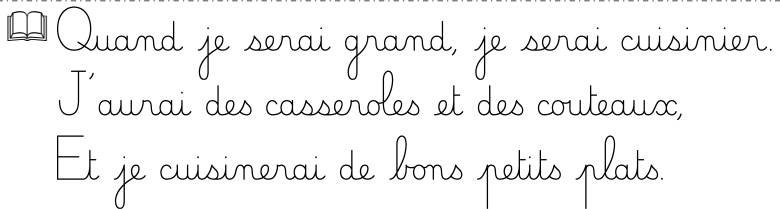 Quand je serai grand, je serai cuisinier.
J'aurai des casseroles et des couteaux,
Et je cuisinerai de bons petits plats.